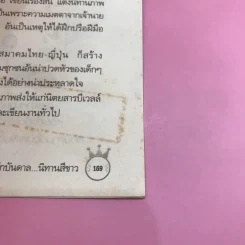 เขียนเรื่องสั้น แต่งนิทานภาพ
เป็นเพราะความเมตตาจากเจ้านาย
อันเป็นเหตุให้ได้ฝึกปรือฝีมือ
สมาคมไทย-ญี่ปุ่น ก็สร้าง
ชุกชนอันน่าปวดหัวของเด็กๆ
ได้อย่างน่าประหลาดใจ
ภาพส่งให้แก่นิตยสารบีเวลล์
และเขียนงานทั่วไป
บันดาล...นิทานสีขาว
169